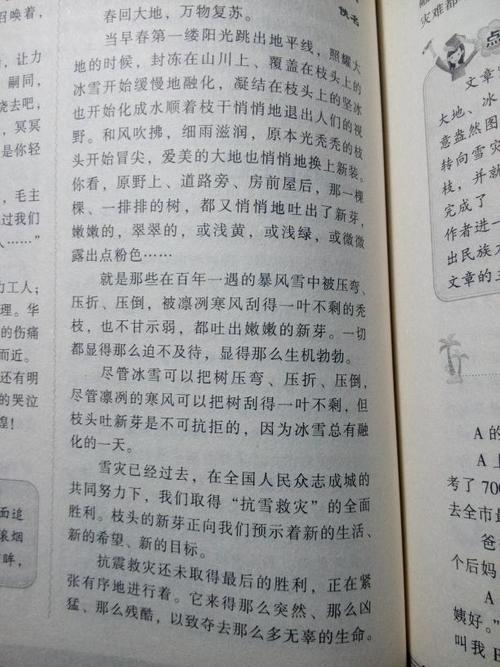 召唤着，
让力
嗣同
烧去吧，
，冥冥
是你轻
，毛主
过我们
人……”
力工人；
理。华
的伤痛
而近。
还有明
的哭泣
煌！
面追
滚烟
眸，
佚名
春回大地，万物复苏。
当早春第一缕阳光跳出地平线，照耀大
地的时候，封冻在山川上、覆盖在枝头上的
冰雪开始缓慢地融化，凝结在枝头上的坚冰
也开始化成水顺着枝干悄悄地退出人们的视
野。和风吹拂，细雨滋润，原本光秃秃的枝
头开始冒尖，爱美的大地也悄悄地换上新装。
你看，原野上、道路旁、房前屋后，那一棵
棵、一排排的树，都又悄悄地吐出了新芽，
嫩嫩的，翠翠的，或浅黄，或浅绿，或微微
露出点粉色……
就是那些在百年一遇的暴风雪中被压弯、
压折、压倒，被凛冽寒风刮得一叶不剩的秃
枝，也不甘示弱，都吐出嫩嫩的新芽。一切
都显得那么迫不及待，显得那么生机勃勃。
尽管冰雪可以把树压弯、压折、压倒，
尽管凛冽的寒风可以把树刮得一叶不剩，但
枝头吐新芽是不可抗拒的，因为冰雪总有融
化的一天。
雪灾已经过去，在全国人民众志成城的
共同努力下，我们取得“抗雪救灾”的全面
胜利。枝头的新芽正向我们预示着新的生活、
新的希望、新的目标。
抗震救灾还未取得最后的胜利，正在紧
张有序地进行着。它来得那么突然、那么凶
猛、那么残酷，以致夺去那么多无辜的生命。
灾难都
点
文章
大地、冰
意盎然图
转向雪灾
枝，并就
完成了
作者进一
出民族不
文章的主
A 的
A 上
考了 700
去全市最
爸
个后妈
A
姨好。”
叫我 E